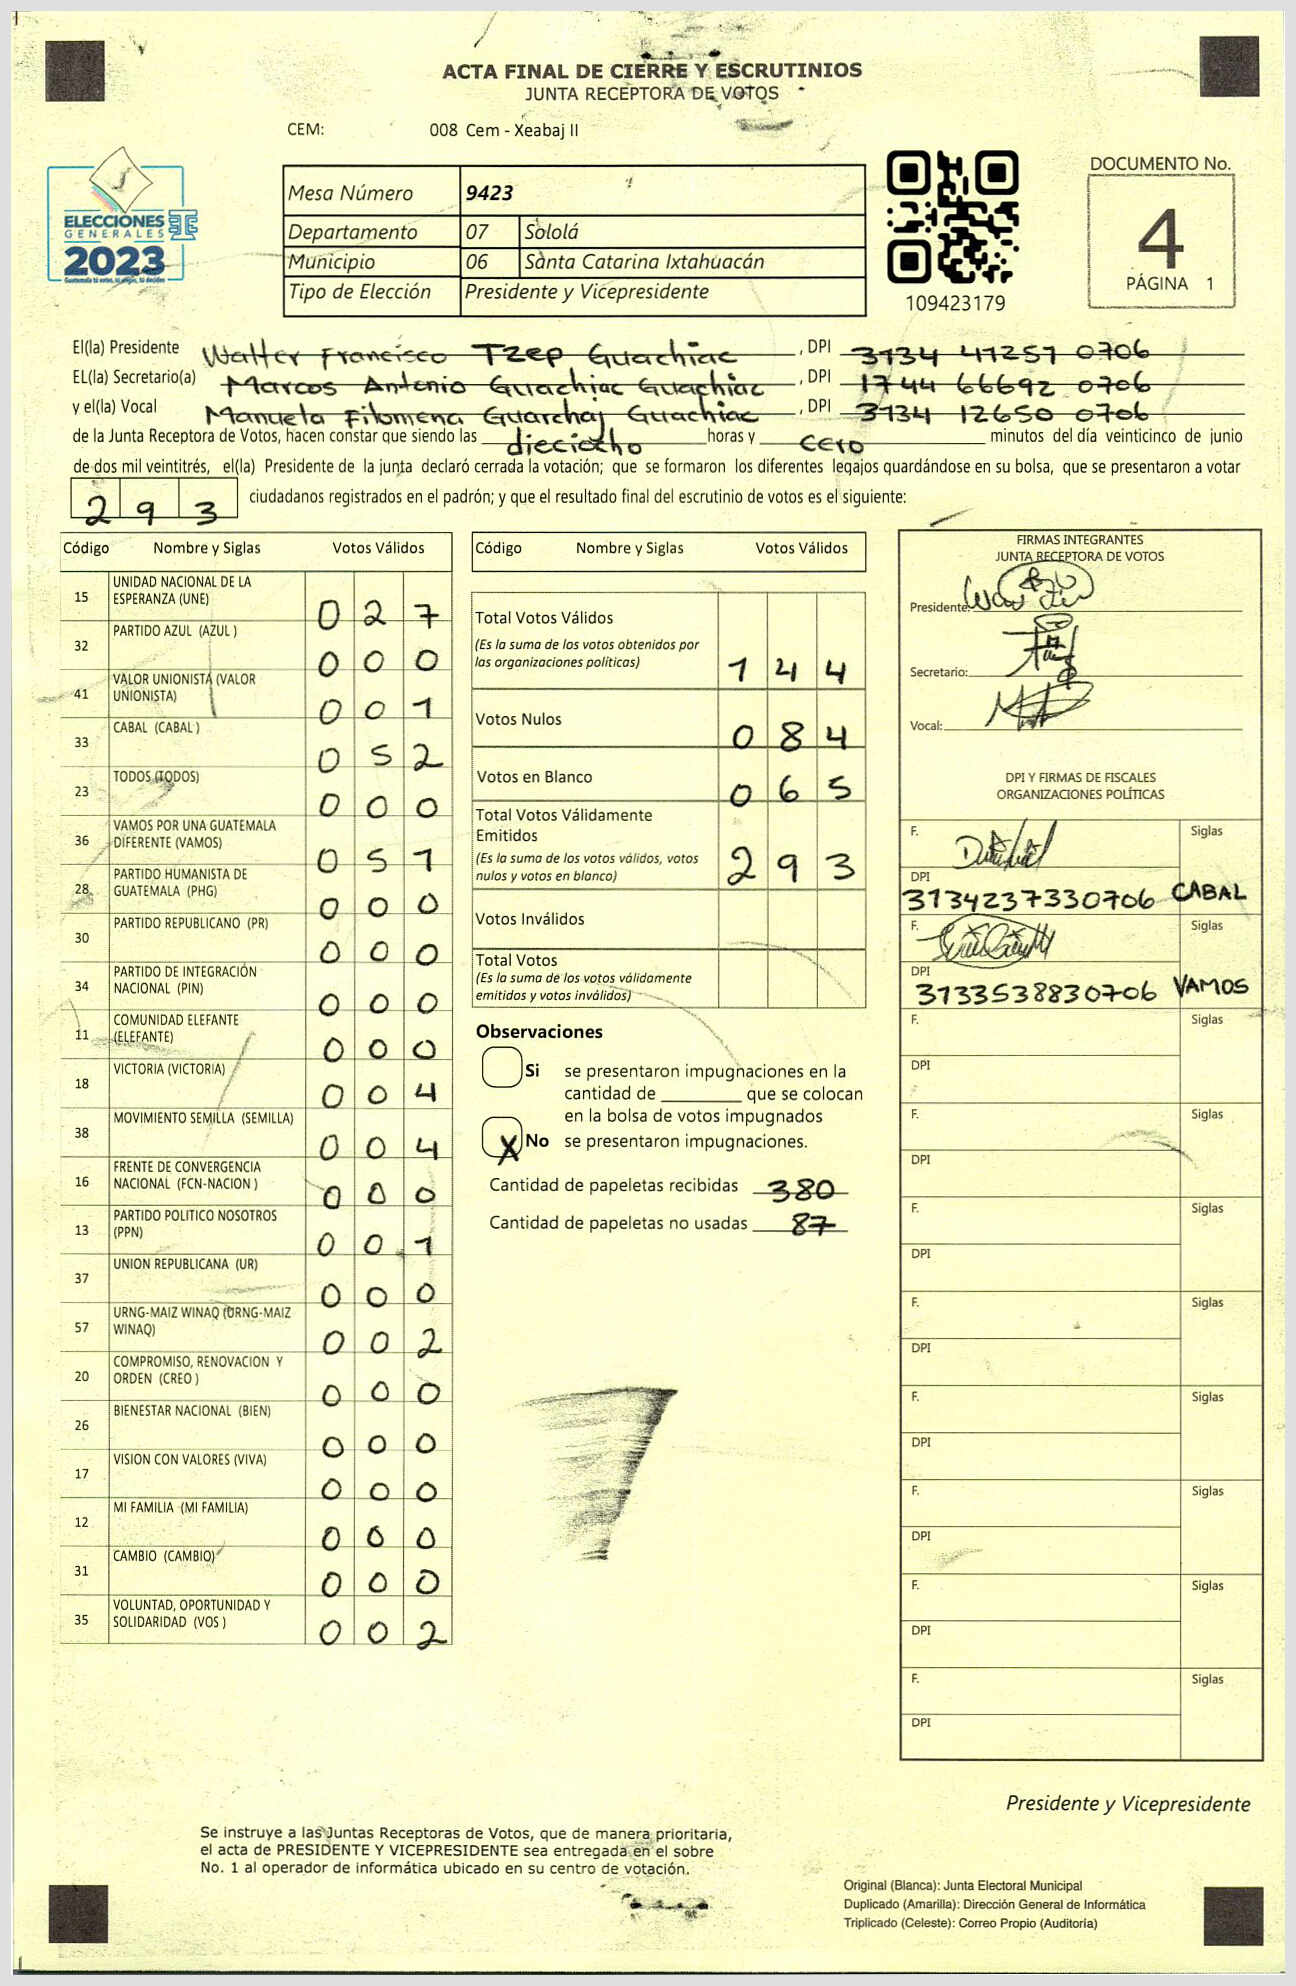 ACTA FINAL DE CIERRE Y ESCRUTINIOS
JUNTA RECEPTORA DE VOTOS
CEM: 008 Cem - Xeabaj II
ELECCIONES
GENERALES
2023
Guatemala tú votas, tú eliges, tú decides
Mesa Número 9423
Departamento 07 Sololá
Municipio 06 Santa Catarina Ixtahuacán
Tipo de Elección Presidente y Vicepresidente
109423179
DOCUMENTO No.
4
PÁGINA 1
El(la) Presidente Walter Francisco Tzep Guachiac , DPI 3134 41257 0706
EL(la) Secretario(a) Marcos Antonio Guachiac Guachiac , DPI 1744 66692 0706
y el(la) Vocal Manuela Filomena Guarchaj Guachiac , DPI 3134 12650 0706
de la Junta Receptora de Votos, hacen constar que siendo las dieciocho horas y cero minutos del día veinticinco de junio
de dos mil veintitrés, el(la) Presidente de la junta declaró cerrada la votación; que se formaron los diferentes legajos quardándose en su bolsa, que se presentaron a votar
293 ciudadanos registrados en el padrón; y que el resultado final del escrutinio de votos es el siguiente:
Código Nombre y Siglas Votos Válidos
15 UNIDAD NACIONAL DE LA
ESPERANZA (UNE) 027
32 PARTIDO AZUL (AZUL ) 000
41 VALOR UNIONISTA (VALOR
UNIONISTA) 001
33 CABAL (CABAL ) 052
23 TODOS (TODOS) 000
36 VAMOS POR UNA GUATEMALA
DIFERENTE (VAMOS) 051
28 PARTIDO HUMANISTA DE
GUATEMALA (PHG) 000
30 PARTIDO REPUBLICANO (PR) 000
34 PARTIDO DE INTEGRACIÓN
NACIONAL (PIN) 000
11 COMUNIDAD ELEFANTE
(ELEFANTE) 000
18 VICTORIA (VICTORIA) 004
38 MOVIMIENTO SEMILLA (SEMILLA) 004
16 FRENTE DE CONVERGENCIA
NACIONAL (FCN-NACION ) 000
13 PARTIDO POLITICO NOSOTROS
(PPN) 001
37 UNION REPUBLICANA (UR) 000
57 URNG-MAIZ WINAQ (URNG-MAIZ
WINAQ) 002
20 COMPROMISO, RENOVACION Y
ORDEN (CREO ) 000
26 BIENESTAR NACIONAL (BIEN) 000
17 VISION CON VALORES (VIVA) 000
12 MI FAMILIA (MI FAMILIA) 000
31 CAMBIO (CAMBIO) 000
35 VOLUNTAD, OPORTUNIDAD Y
SOLIDARIDAD (VOS ) 002
Código Nombre y Siglas Votos Válidos
Total Votos Válidos
(Es la suma de los votos obtenidos por
las organizaciones políticas) 144
Votos Nulos 084
Votos en Blanco 065
Total Votos Válidamente
Emitidos
(Es la suma de los votos válidos, votos
nulos y votos en blanco) 293
Votos Inválidos
Total Votos
(Es la suma de los votos válidamente
emitidos y votos inválidos)
Observaciones
Si se presentaron impugnaciones en la
cantidad de ________ que se colocan
en la bolsa de votos impugnados
X No se presentaron impugnaciones.
Cantidad de papeletas recibidas 380
Cantidad de papeletas no usadas 87
FIRMAS INTEGRANTES
JUNTA RECEPTORA DE VOTOS
Presidente:
Secretario:
Vocal:
DPI Y FIRMAS DE FISCALES
ORGANIZACIONES POLÍTICAS
F. Siglas
DPI
3134237330706 CABAL
F. Siglas
DPI
3133538830706 VAMOS
F. Siglas
DPI
F. Siglas
DPI
F. Siglas
DPI
F. Siglas
DPI
F. Siglas
DPI
F. Siglas
DPI
F. Siglas
DPI
F. Siglas
DPI
Presidente y Vicepresidente
Se instruye a las Juntas Receptoras de Votos, que de manera prioritaria,
el acta de PRESIDENTE Y VICEPRESIDENTE sea entregada en el sobre
No. 1 al operador de informática ubicado en su centro de votación.
Original (Blanca): Junta Electoral Municipal
Duplicado (Amarilla): Dirección General de Informática
Triplicado (Celeste): Correo Propio (Auditoría)